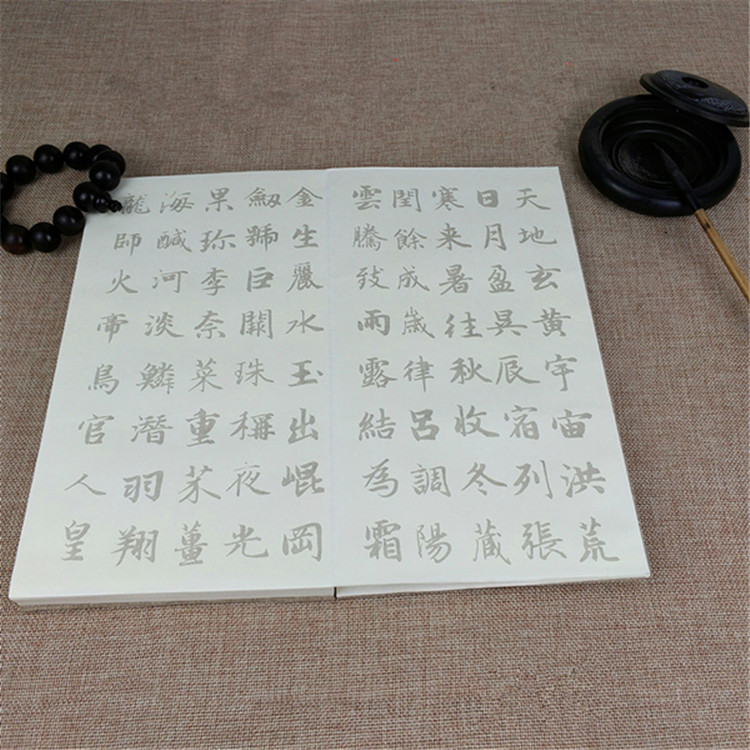 天地玄黄宇宙洪荒
日月盈昃辰宿列張
寒来暑往秋收冬蔵
閏餘成歲律吕調陽
雲騰致雨露結為霜
金生麗水玉出崐岡
劒號巨闕珠稱夜光
果珎李柰菜重芥薑
海鹹河淡鱗潛羽翔
龍師火帝鳥官人皇